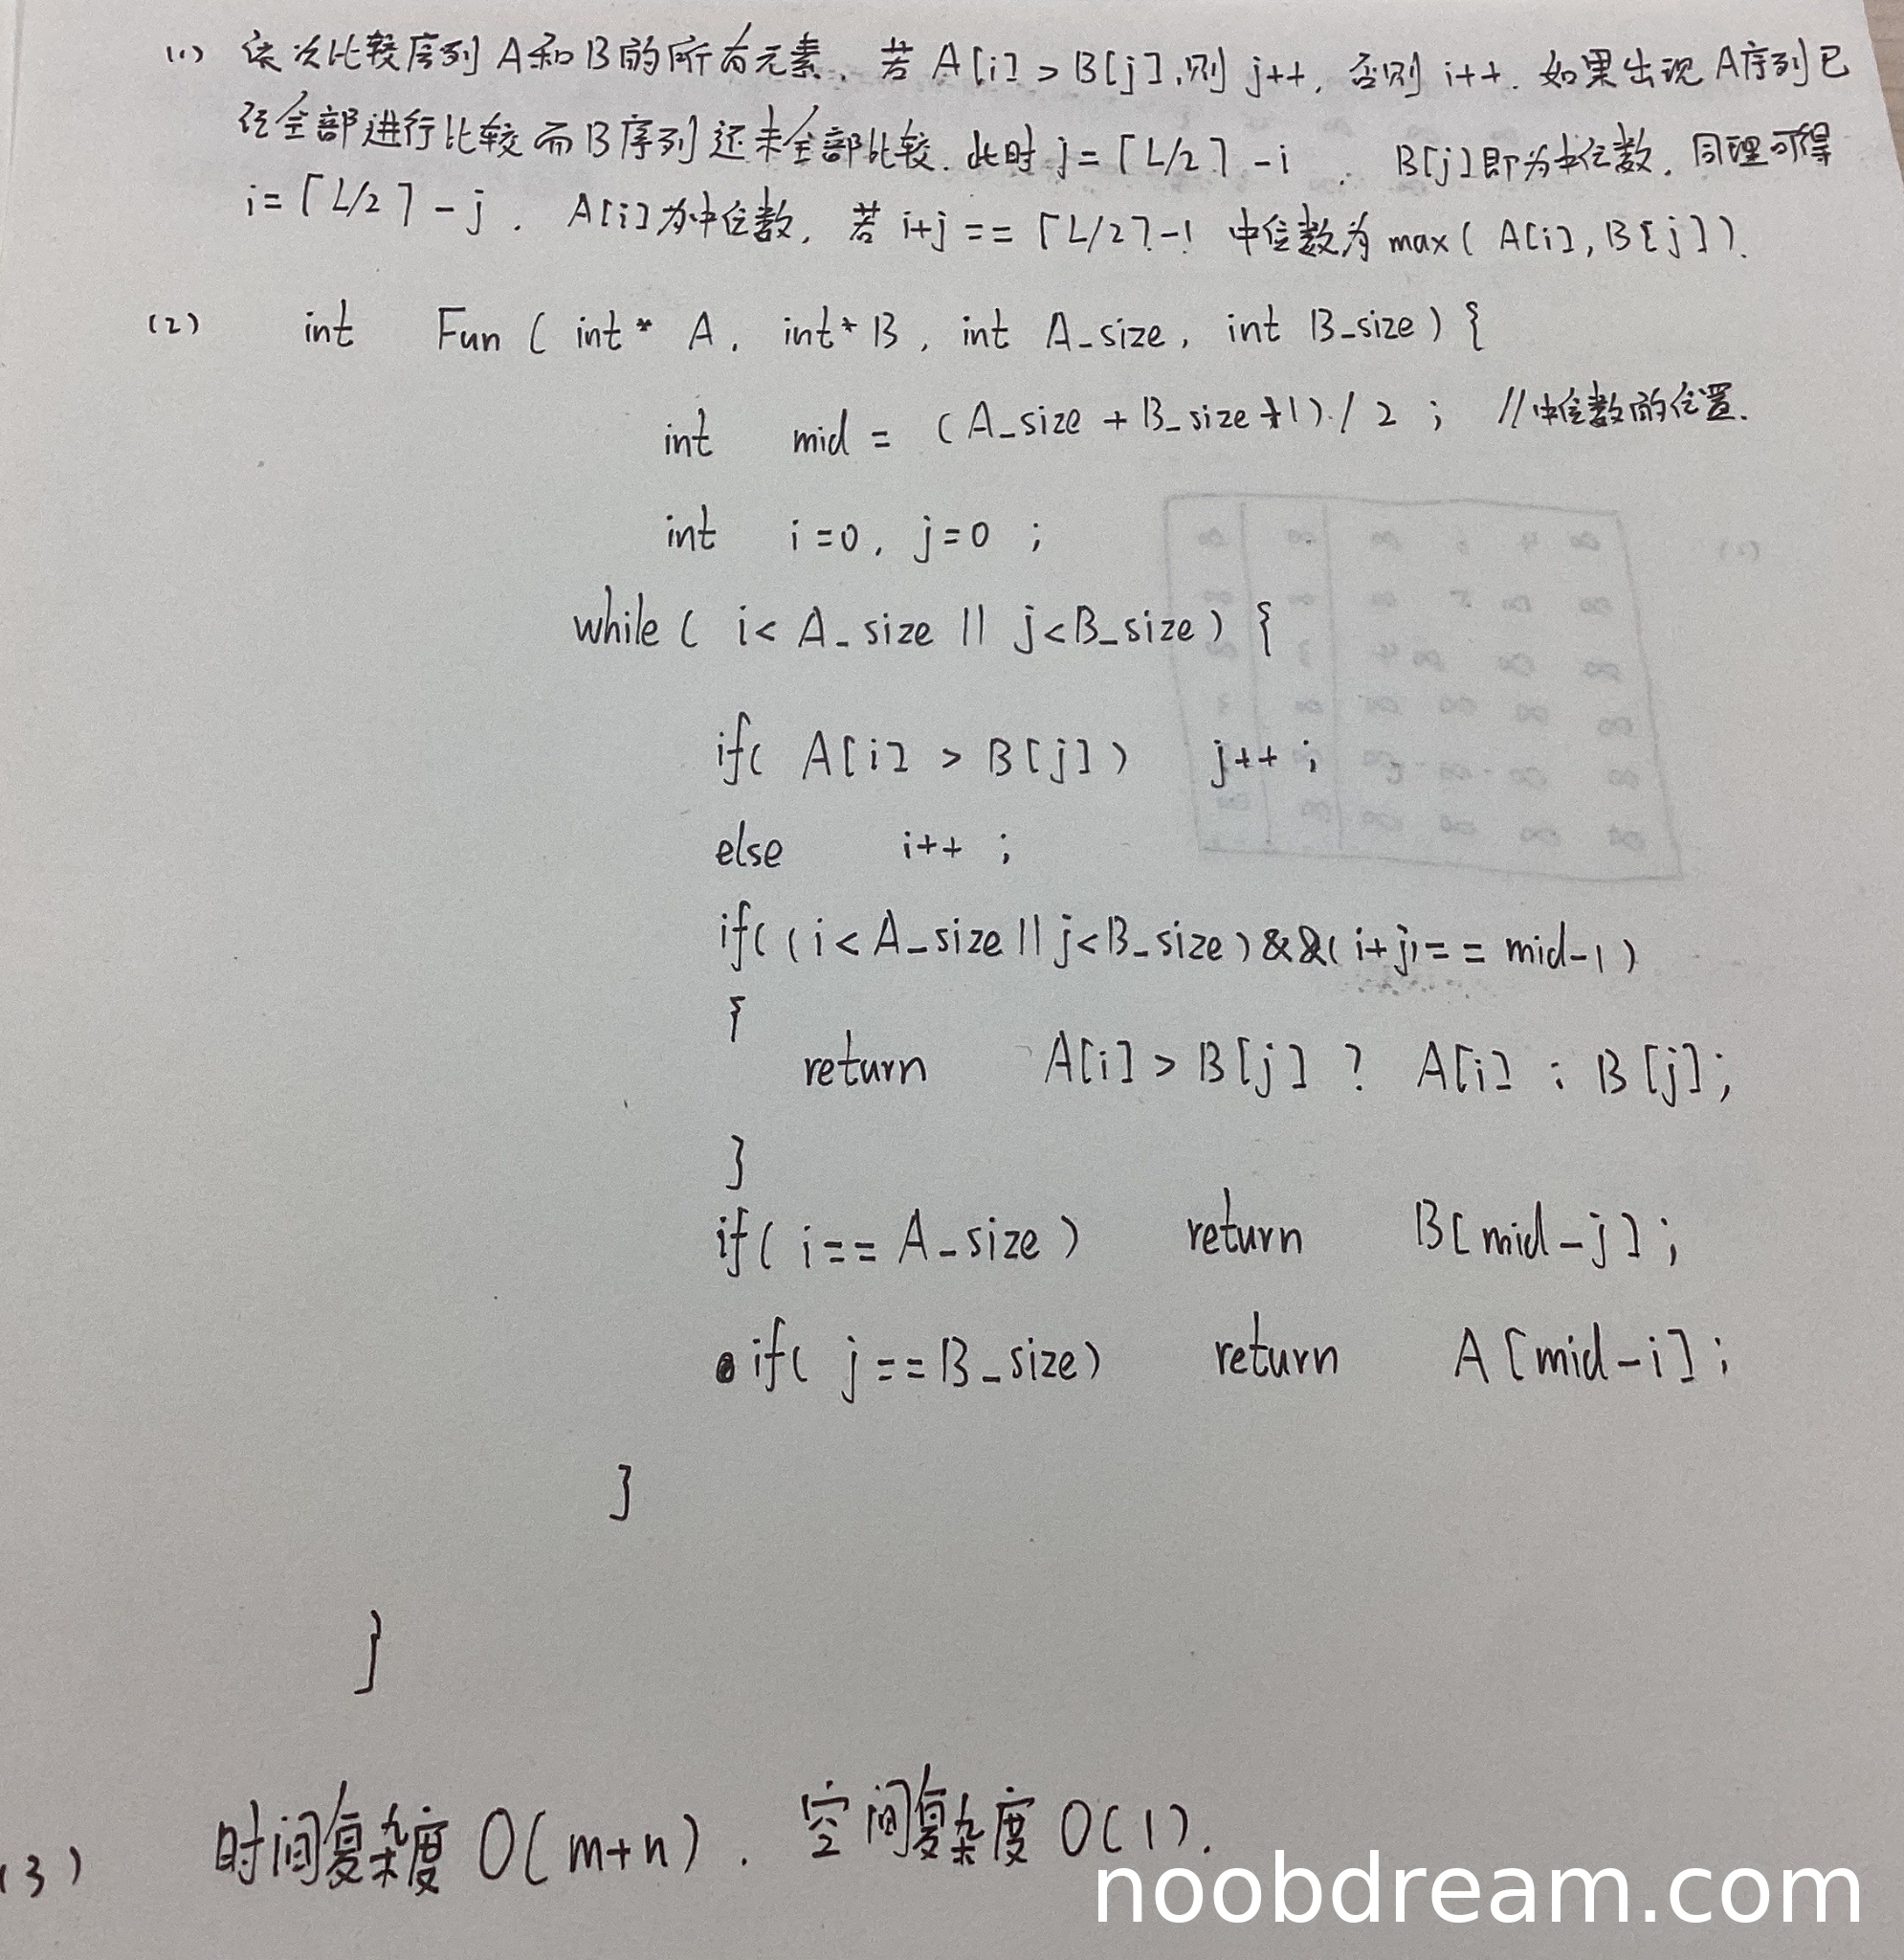 (1) 依次比较序列A和B的所有元素. 若A[i]>B[j],则j++, 否则i++. 如果出现A序列已
经全部进行比较而B序列还未全部比较. 此时j=⌈L/2⌉-i . B[j]即为中位数. 同理可得
i=⌈L/2⌉-j . A[i]为中位数. 若i+j==⌈L/2⌉-1 中位数为max(A[i],B[j]).
(2) int Fun(int* A, int* B, int A_size, int B_size){
int mid = (A_size + B_size+1)/2 ; //中位数的位置.
int i=0, j=0 ;
while( i<A_size || j<B_size){
if( A[i] > B[j]) j++ ;
else i++ ;
if((i<A_size||j<B_size)&&(i+j)==mid-1)
{
return A[i]>B[j] ? A[i] : B[j];
}
if( i==A_size) return B[mid-j] ;
if( j==B_size) return A[mid-i] ;
}
}
(3) 时间复杂度O(m+n). 空间复杂度O(1).
noobdream.com